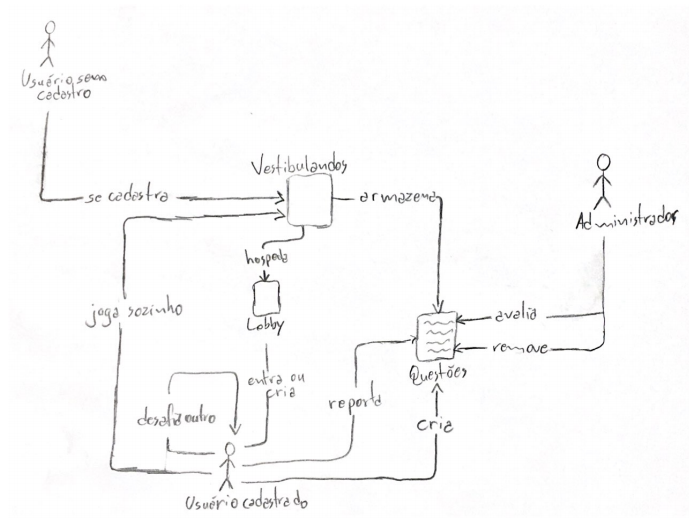 Usuário sem
cadastro
Vestibulandos
se cadastra
armazena
Administrador
hospeda
joga sozinho
Lobby
avalia
remove
Questões
entra ou
cria
reporta
desafia outro
cria
Usuário cadastrado